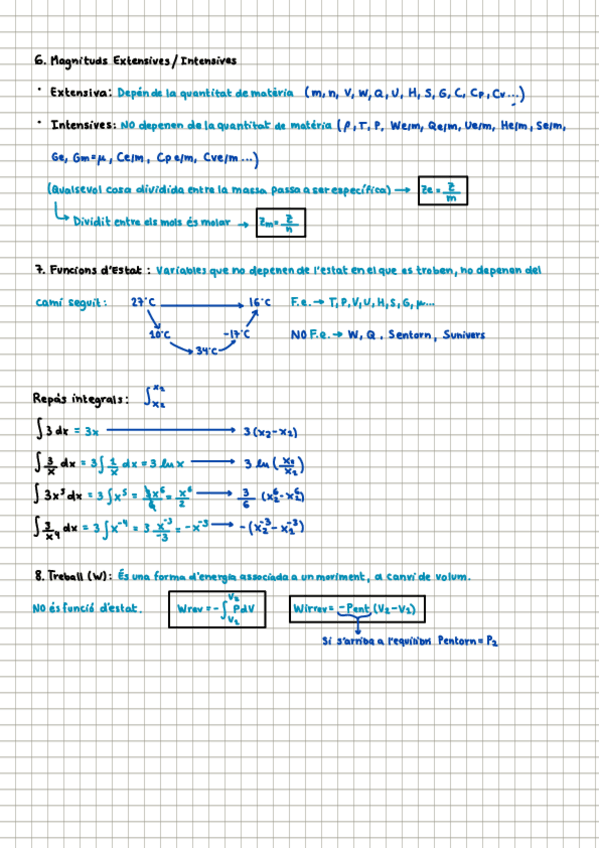 6. Magnituds Extensives / Intensives
· Extensiva: Depén de la quantitat de matèria (m, n, V, W, Q, U, H, S, G, C, Cp, Cv...)
· Intensives: NO depenen de la quantitat de matèria (ρ, T, P, We/m, Qe/m, Ue/m, He/m, Se/m,
Ge, Gm=μ, Ce/m, Cp e/m, Cve/m...)
(Qualsevol cosa dividida entre la massa passa a ser específica) → Ze = Z/m
Dividit entre els mols és molar → Zm = Z/n
7. Funcions d'Estat: Variables que no depenen de l'estat en el que es troben, no depenen del
camí seguit: 27°C → 16°C F.e. → T, P, V, U, H, S, G, μ...
10°C -17°C NO F.e. → W, Q, Sentorn, Sunivers
34°C
Repàs integrals:
∫3 dx = 3x → 3(x₂-x₁)
∫ 3/x dx = 3∫ 1/x dx = 3 ln x → 3 ln (x₂/x₁)
∫ 3x⁵ dx = 3 ∫x⁵ = = x⁶/2 → 3/6 (x₂⁶-x₁⁶)
∫ 3/x⁴ dx = 3 ∫x⁻⁴ = 3 x⁻³/-3 = -x⁻³ → -(x₂⁻³-x₁⁻³)
8. Treball (W): És una forma d'energia associada a un moviment, a canvi de volum.
NO és funció d'estat. Wrev = -∫ PdV Wirrev = -Pent (V₂-V₁)
Si s'arriba a l'equilibri Pentorn = P₂